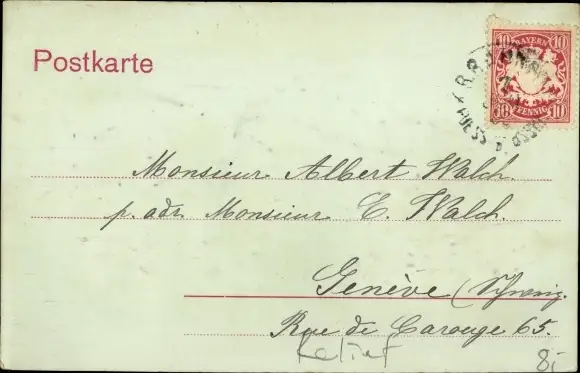 Postkarte
10 BAYERN 10
10 PFENNIG 10
Monsieur Albert Walch.
p. adr. Monsieur E. Walch.
Genève (Schweiz.
Rue de Carouge 65.
Relief
8,-